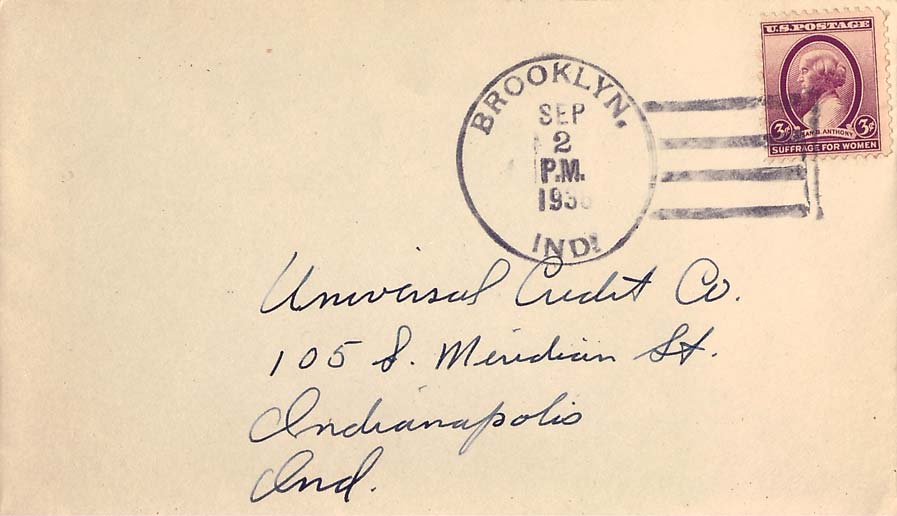 U.S. POSTAGE
3¢ SUSAN B. ANTHONY 3¢
SUFFRAGE FOR WOMEN
BROOKLYN,
SEP
2
P.M.
IND.
Universal Credit Co.
105 S. Meridian St.
Indianapolis
Ind.